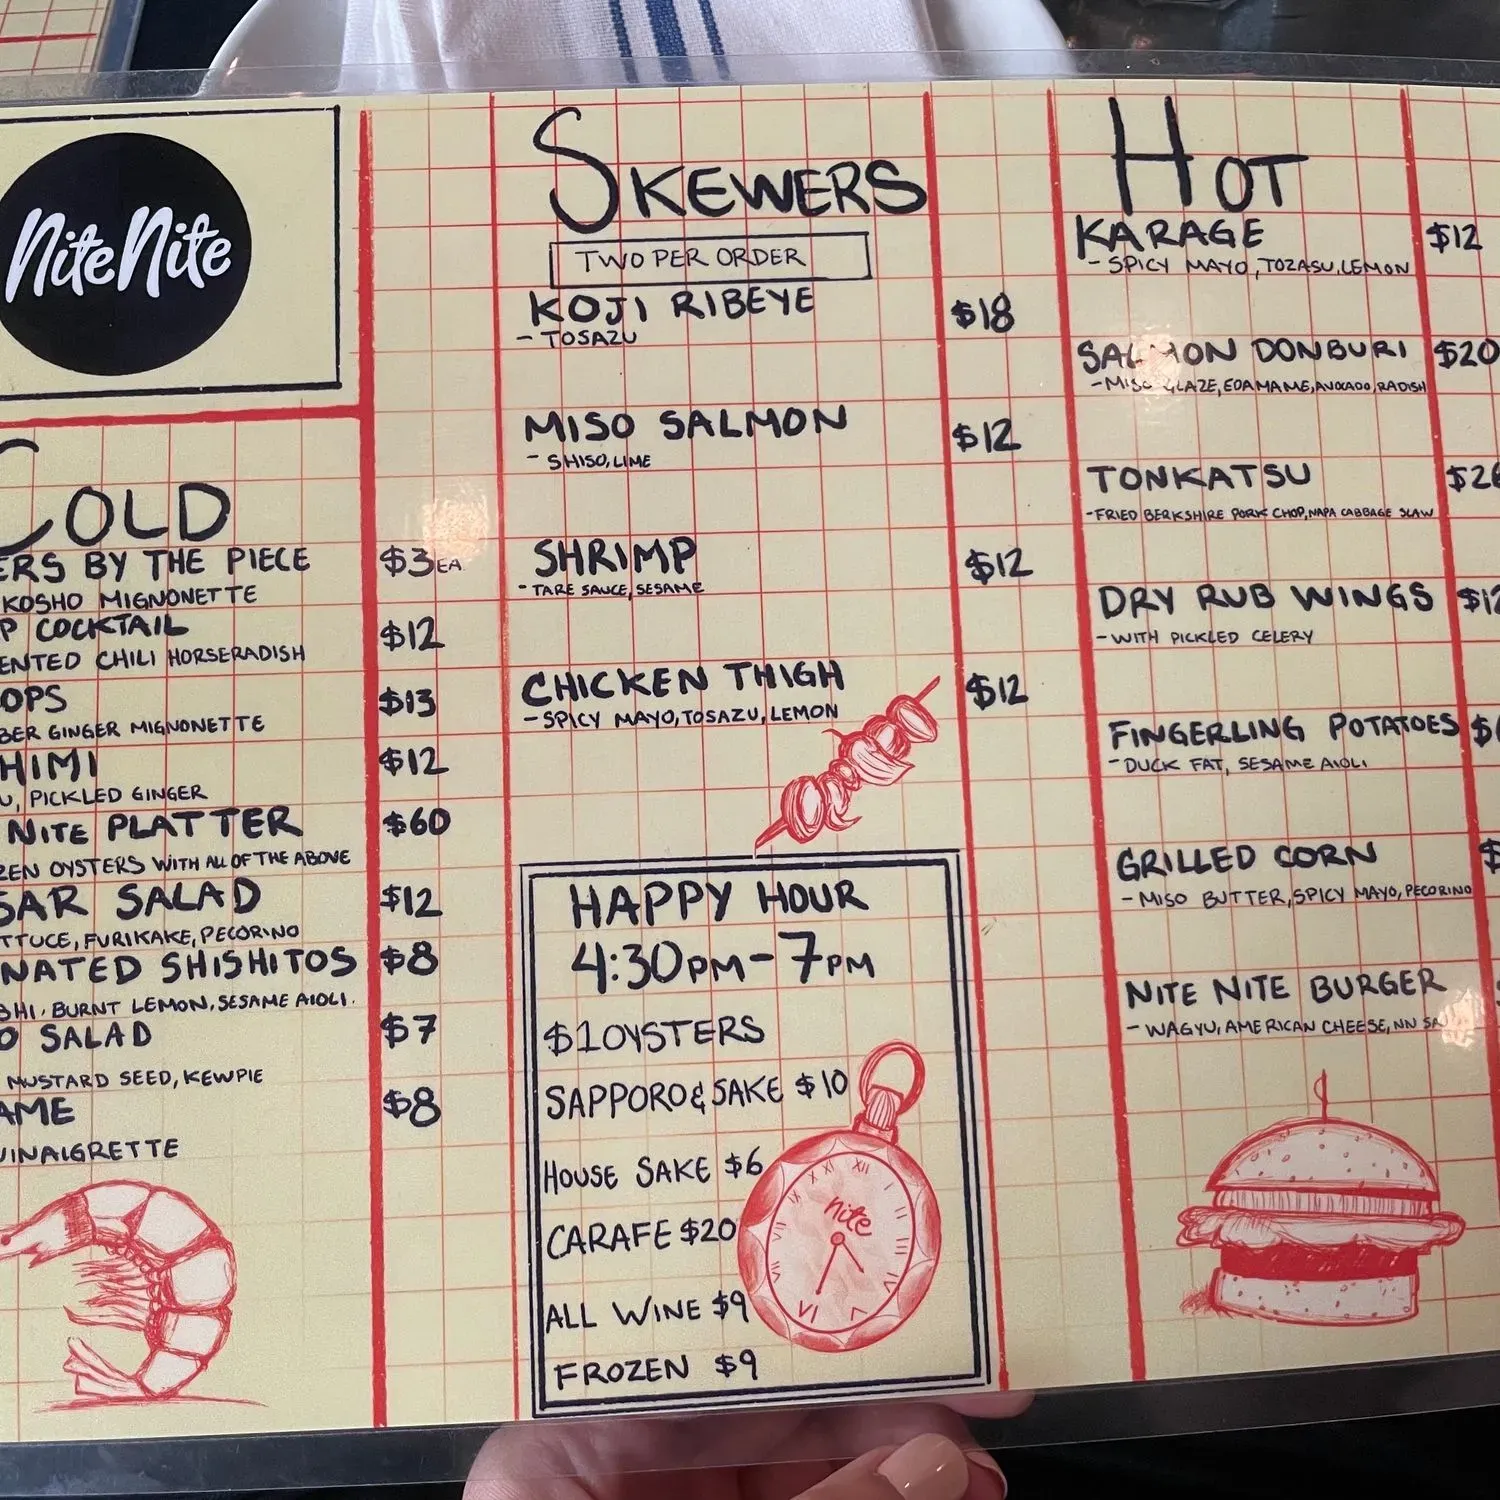 Nite Nite
COLD
ERS BY THE PIECE $3 EA
KOSHO MIGNONETTE
P COCKTAIL $12
ENTED CHILI HORSERADISH
OPS $13
BER GINGER MIGNONETTE
HIMI $12
U, PICKLED GINGER
NITE PLATTER $60
ZEN OYSTERS WITH ALL OF THE ABOVE
SAR SALAD $12
TTUCE, FURIKAKE, PECORINO
NATED SHISHITOS $8
BHI. BURNT LEMON, SESAME AIOLI.
O SALAD $7
MUSTARD SEED, KEWPIE
AME $8
VINAIGRETTE
SKEWERS
TWO PER ORDER
KOJI RIBEYE $18
- TOSAZU
MISO SALMON $12
- SHISO, LIME
SHRIMP $12
- TARE SAUCE, SESAME
CHICKEN THIGH $12
- SPICY MAYO, TOSAZU, LEMON
HAPPY HOUR
4:30PM - 7PM
$1 OYSTERS
SAPPORO & SAKE $10
HOUSE SAKE $6
CARAFE $20
ALL WINE $9
FROZEN $9
nite
HOT
KARAGE $12
- SPICY MAYO, TOZASU, LEMON
SALMON DONBURI $20
- MISO GLAZE, EDAMAME, AVOCADO, RADISH
TONKATSU $26
- FRIED BERKSHIRE PORK CHOP, NAPA CABBAGE SLAW
DRY RUB WINGS $12
- WITH PICKLED CELERY
FINGERLING POTATOES $
- DUCK FAT, SESAME AIOLI
GRILLED CORN $
- MISO BUTTER, SPICY MAYO, PECORINO
NITE NITE BURGER
- WAGYU, AMERICAN CHEESE, NN SA